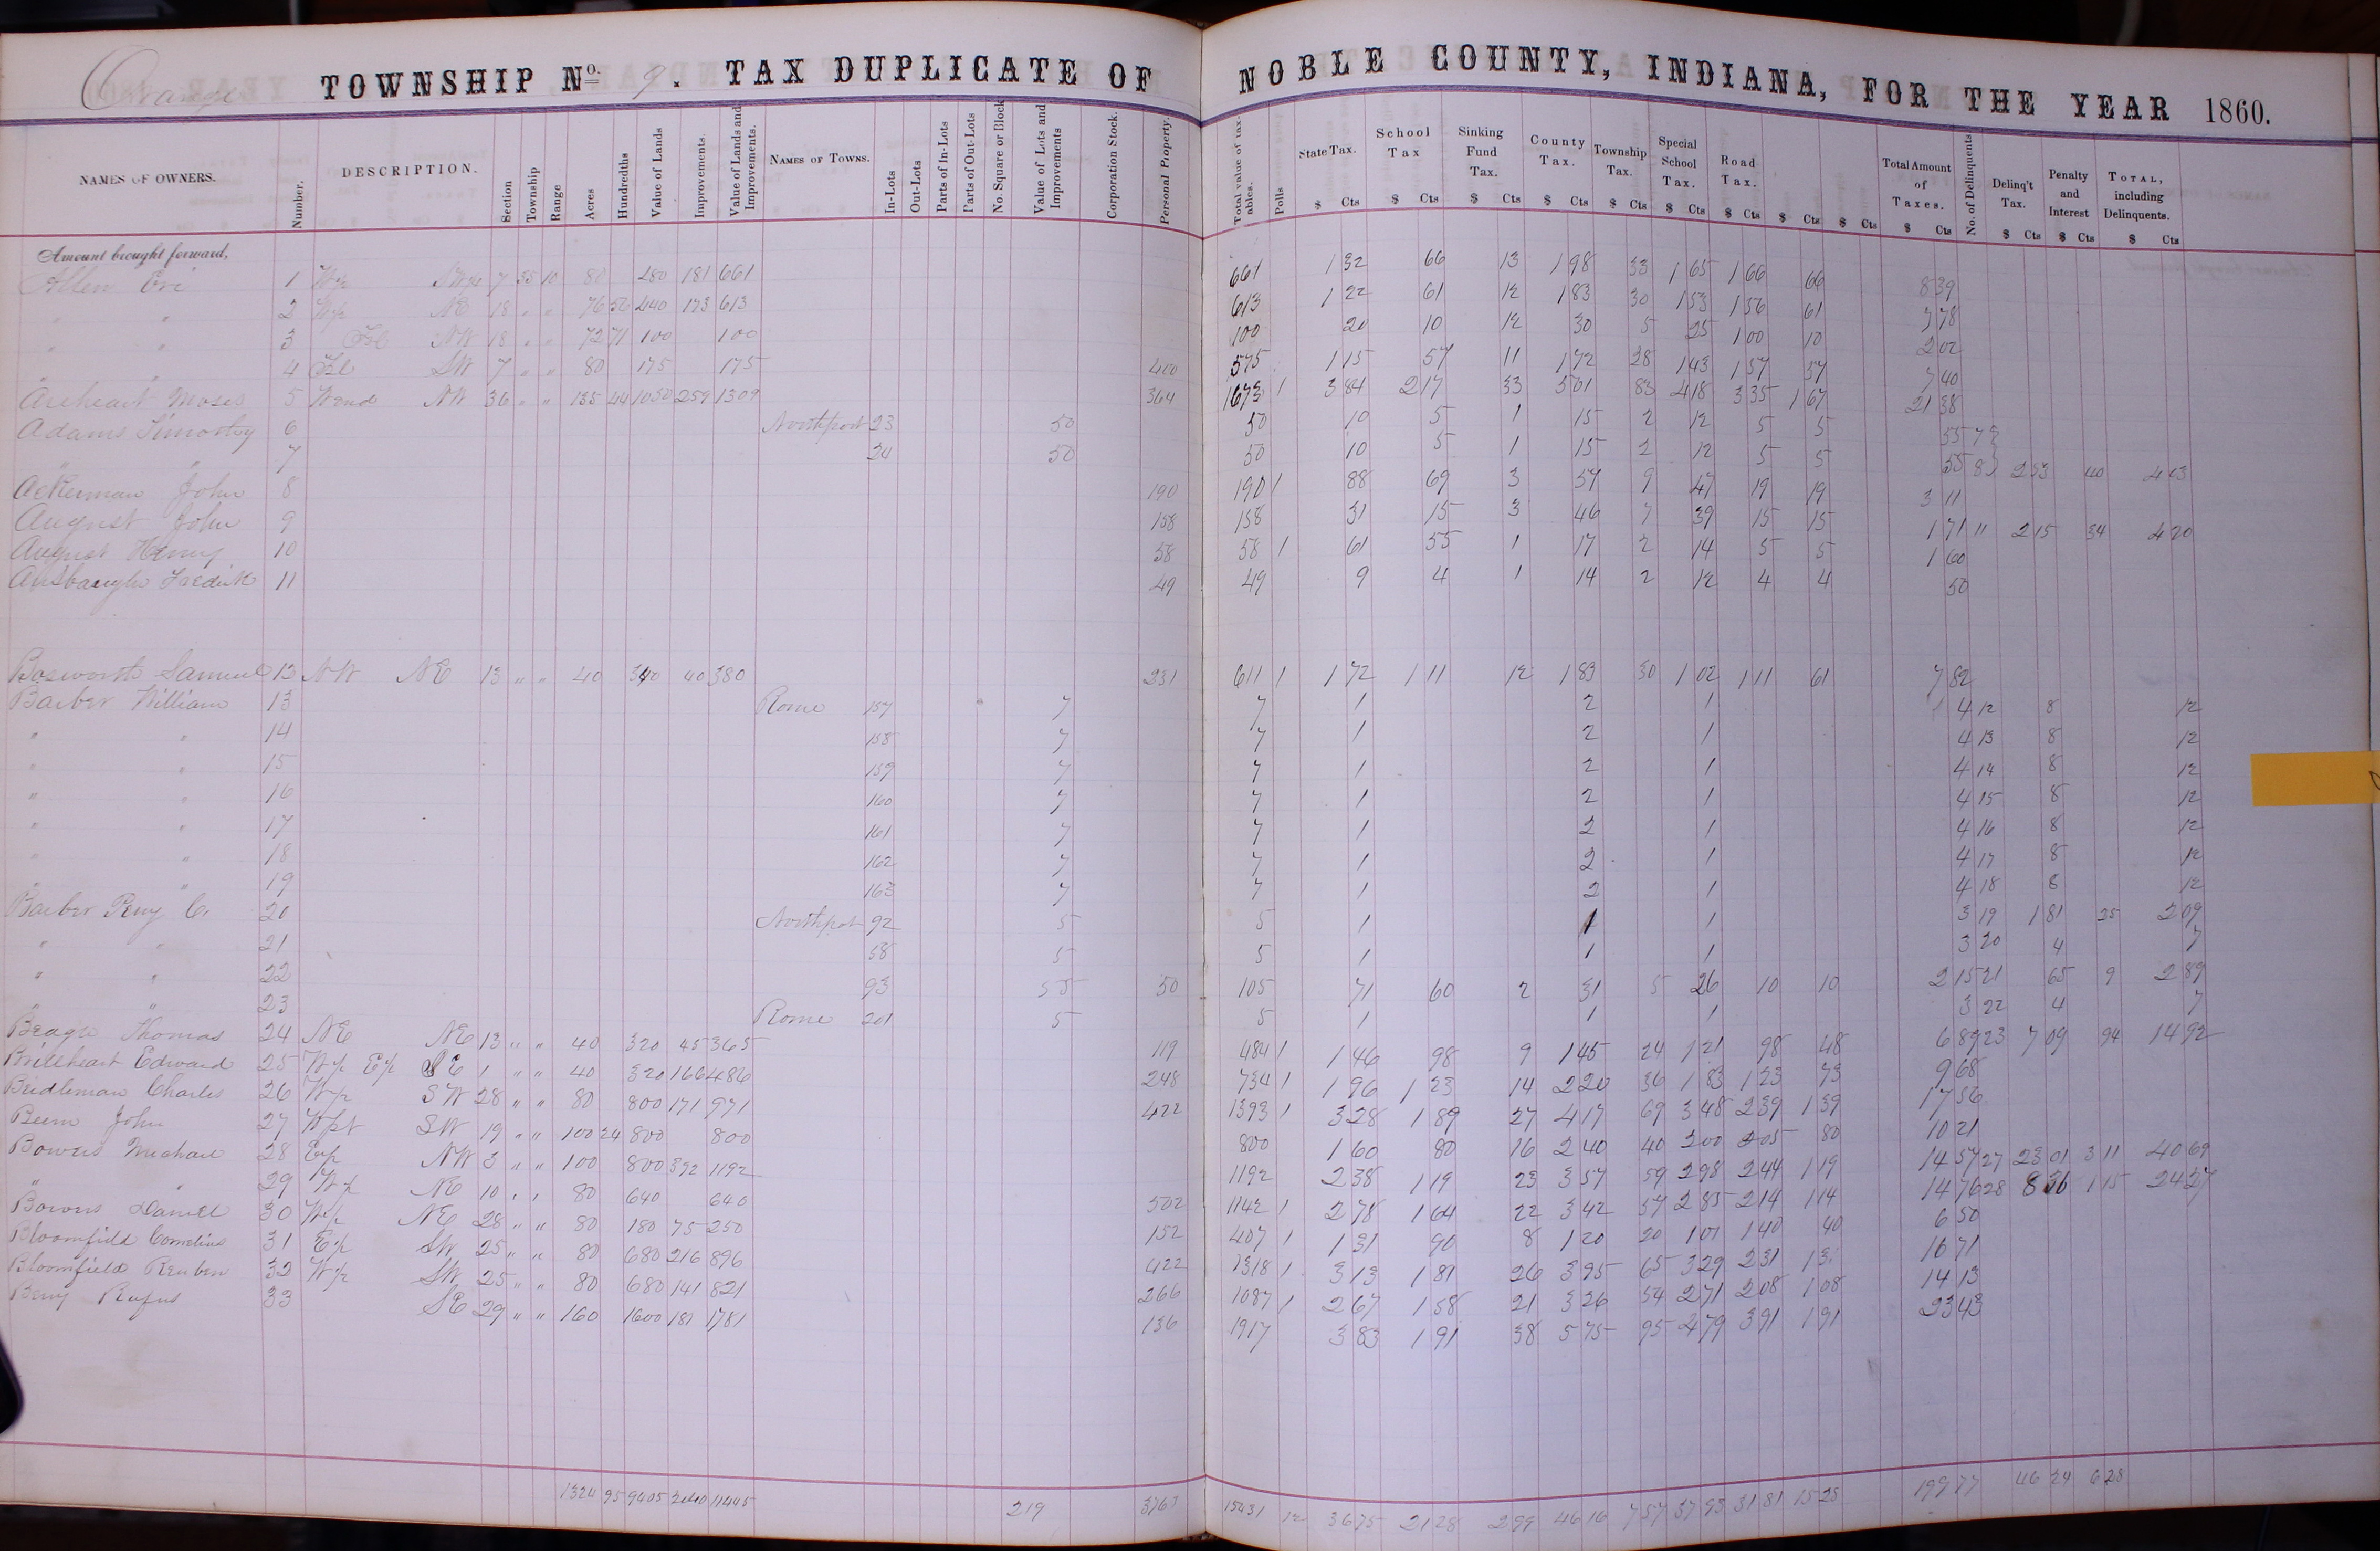 Orange TOWNSHIP No. 9. TAX DUPLICATE OF NOBLE COUNTY, INDIANA, FOR THE YEAR 1860.
NAMES OF OWNERS. Number. DESCRIPTION. Section Township Range Acres Hundredths Value of Lands Improvements. Value of Lands and Improvements. NAMES OF TOWNS. In-Lots Out-Lots Parts of In-Lots Parts of Out-Lots No. Square or Block Value of Lots and Improvements Corporation Stock. Personal Property. Total value of taxables. Polls State Tax. School Tax Sinking Fund Tax. County Tax. Township Tax. Special School Tax. Road Tax. Total Amount of Taxes. No. of Delinquents Delinq't Tax. Penalty and Interest TOTAL, including Delinquents.
$ Cts $ Cts $ Cts $ Cts $ Cts $ Cts $ Cts $ Cts $ Cts $ Cts $ Cts $ Cts $ Cts
Amount brought forward,
Allen Eri 1 7 35 10 80 480 181 661 661 1 32 66 13 1 98 33 1 65 1 66 66 8 39
" " 2 NE 18 " " 76 56 440 173 613 613 1 22 61 12 1 83 30 1 53 1 56 61 7 78
" " 3 NW 18 " " 72 71 100 100 100 20 10 12 30 5 25 1 00 10 2 02
" " 4 SW 7 " " 80 175 175 400 575 1 15 57 11 1 72 28 1 43 1 57 57 7 40
Areheart Moses 5 W end NW 36 " " 135 44 1050 259 1309 364 1673 1 3 84 2 17 33 5 01 83 4 18 3 35 1 67 21 38
Adams Timothy 6 Northport 23 50 50 10 5 1 15 2 12 5 5 55
" " 7 24 50 50 10 5 1 15 2 12 5 5 55 8 2 53 40 4 03
Ackerman John 8 190 190 1 88 69 3 57 9 47 19 19 3 11
August John 9 158 158 31 15 3 46 7 39 15 15 1 71 11 2 15 34 4 20
August Henry 10 58 58 1 61 55 1 17 2 14 5 5 1 60
Ansbaugh Fredrik 11 49 49 9 4 1 14 2 12 4 4 50
Bosworth Samuel 12 NW NE 13 " " 40 340 40 380 231 611 1 1 72 1 11 12 1 83 30 1 02 1 11 61 7 82
Barber William 13 Rome 157 7 7 1 2 1 4 12 8 12
" " 14 158 7 7 1 2 1 4 13 8 12
" " 15 159 7 7 1 2 1 4 14 8 12
" " 16 160 7 7 1 2 1 4 15 8 12
" " 17 161 7 7 1 2 1 4 16 8 12
" " 18 162 7 7 1 2 1 4 17 8 12
" " 19 163 7 7 1 2 1 4 18 8 12
Barber Perry C. 20 Northport 92 5 5 1 1 1 3 19 1 81 25 2 09
" " 21 58 5 5 1 1 1 3 20 4 7
" " 22 93 55 50 105 71 60 2 31 5 26 10 10 2 15 21 65 9 2 89
" " 23 Rome 201 5 5 1 1 1 3 22 4 7
Beagre Thomas 24 NE NE 13 " " 40 320 45 365 119 484 1 1 46 98 9 1 45 24 1 21 98 48 6 89 23 7 09 94 14 92
Brillheart Edward 25 W½ E½ SE 1 " " 40 320 166 486 248 734 1 1 96 1 23 14 2 20 36 1 83 1 23 73 9 68
Bridleman Charles 26 W½ SW 28 " " 80 800 171 971 422 1393 1 3 28 1 89 27 4 17 69 3 48 2 39 1 39 17 56
Beem John 27 SW 19 " " 100 24 800 800 800 1 60 80 16 2 40 40 2 00 2 05 80 10 21
Bowers Michael 28 NW 3 " " 100 800 392 1192 1192 2 38 1 19 23 3 57 59 2 98 2 44 1 19 14 57 27 23 01 3 11 40 69
" " 29 W½ NE 10 " " 80 640 640 502 1142 1 2 78 1 64 22 3 42 57 2 85 2 14 1 14 14 76 28 8 36 1 15 24 27
Bowers Daniel 30 W½ NE 28 " " 80 180 75 250 152 407 1 1 31 90 8 1 20 20 1 01 1 40 40 6 50
Bloomfield Cornelius 31 E½ SW 25 " " 80 680 216 896 422 1318 1 3 13 1 81 26 3 95 65 3 29 2 31 1 31 16 71
Bloomfield Reuben 32 W½ SW 25 " " 80 680 141 821 266 1087 1 2 67 1 58 21 3 26 54 2 71 2 08 1 08 14 13
Berry Rufus 33 SE 29 " " 160 1600 181 1781 136 1917 3 83 1 91 38 5 75 95 4 79 3 91 1 91 23 43
1324 95 9405 2040 11445 219 3767 15431 12 36 75 21 28 2 99 46 16 7 57 37 93 31 81 15 28 199 77 46 24 6 28